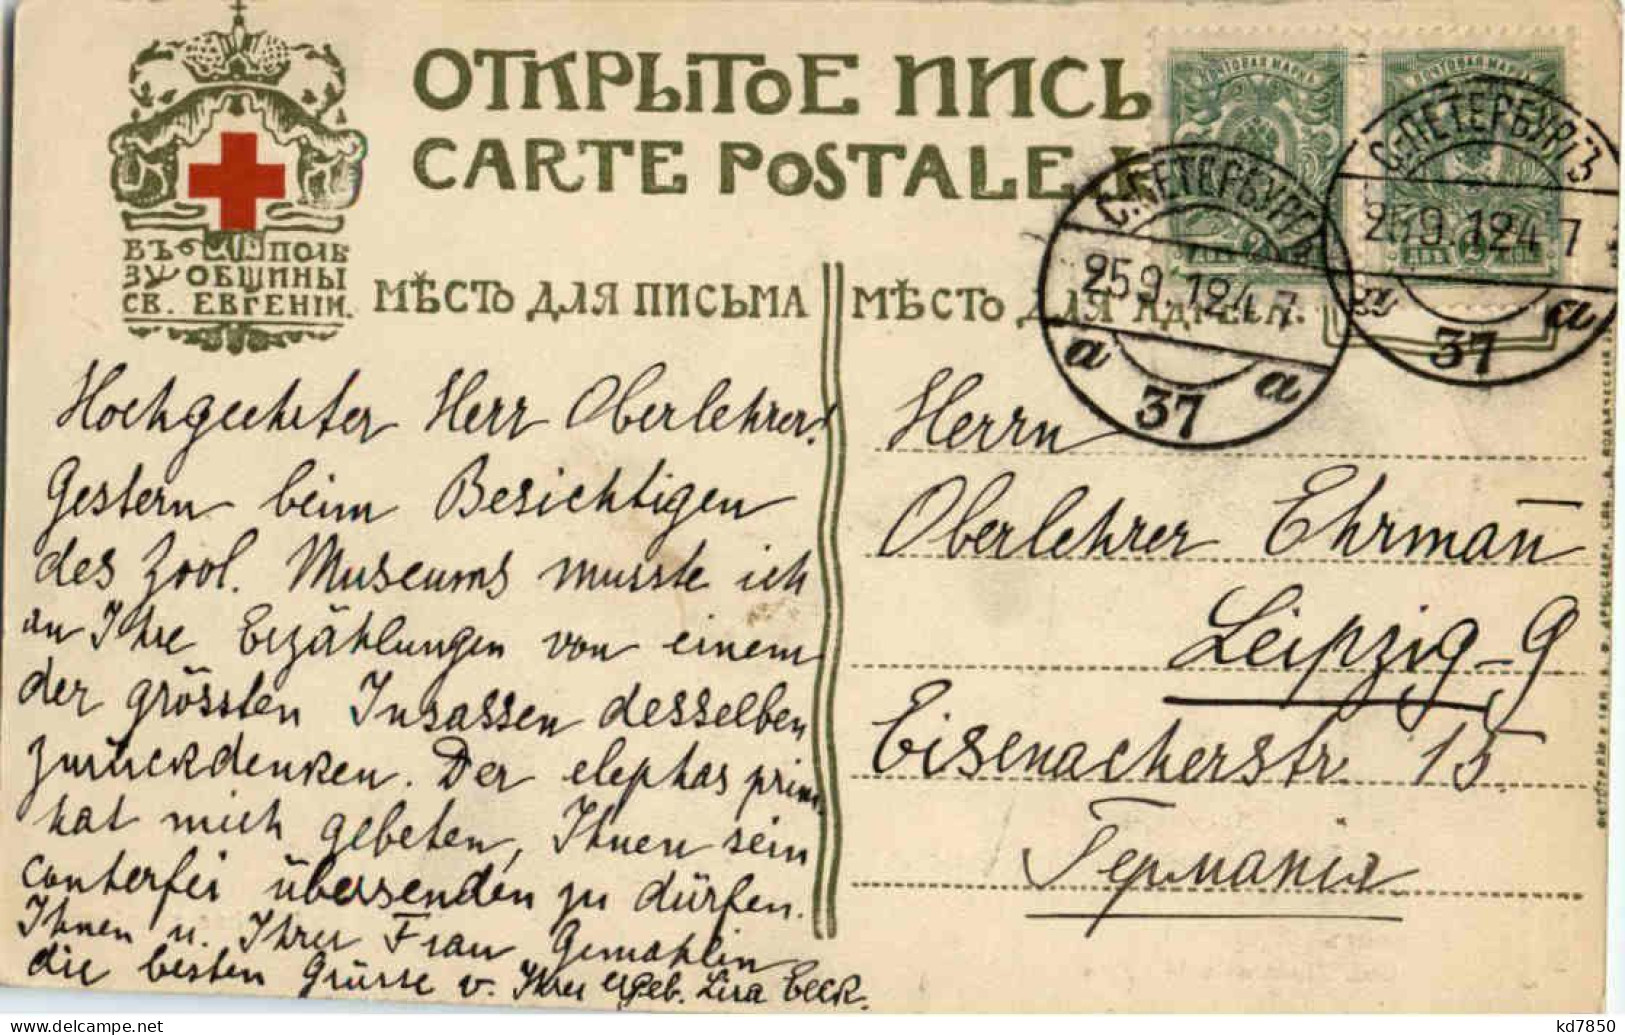 ОТКРЫТОЕ ПИСЬ
CARTE POSTALE
ВЪ ПОЛЬ
ЗУ ОБЩИНЫ
СВ. ЕВГЕНІИ.
МѢСТО ДЛЯ ПИСЬМА
МѢСТО ДЛЯ АДРЕСА.
ПОЧТОВАЯ МАРКА
ПОЧТОВАЯ МАРКА
С.ПЕТЕРБУРГЪ
25.9.12.4
a 37 a
С.ПЕТЕРБУРГЪ
25.9.12.4
37 a
Hochgeehrter Herr Oberlehrer!
Gestern beim Besichtigen
des Zool. Museums musste ich
an Ihre Erzählungen von einem
der grössten Insassen desselben
zurückdenken. Der elephas prim.
hat mich gebeten, Ihnen sein
conterfei übersenden zu dürfen.
Ihnen u. Ihrer Frau Gemahlin
die besten Grüsse v. Ihrer ergeb. Lisa Eeck.
Herrn
Oberlehrer Ehrman̅
Leipzig-G
Eisenacherstr. 15
Германія
kd7850